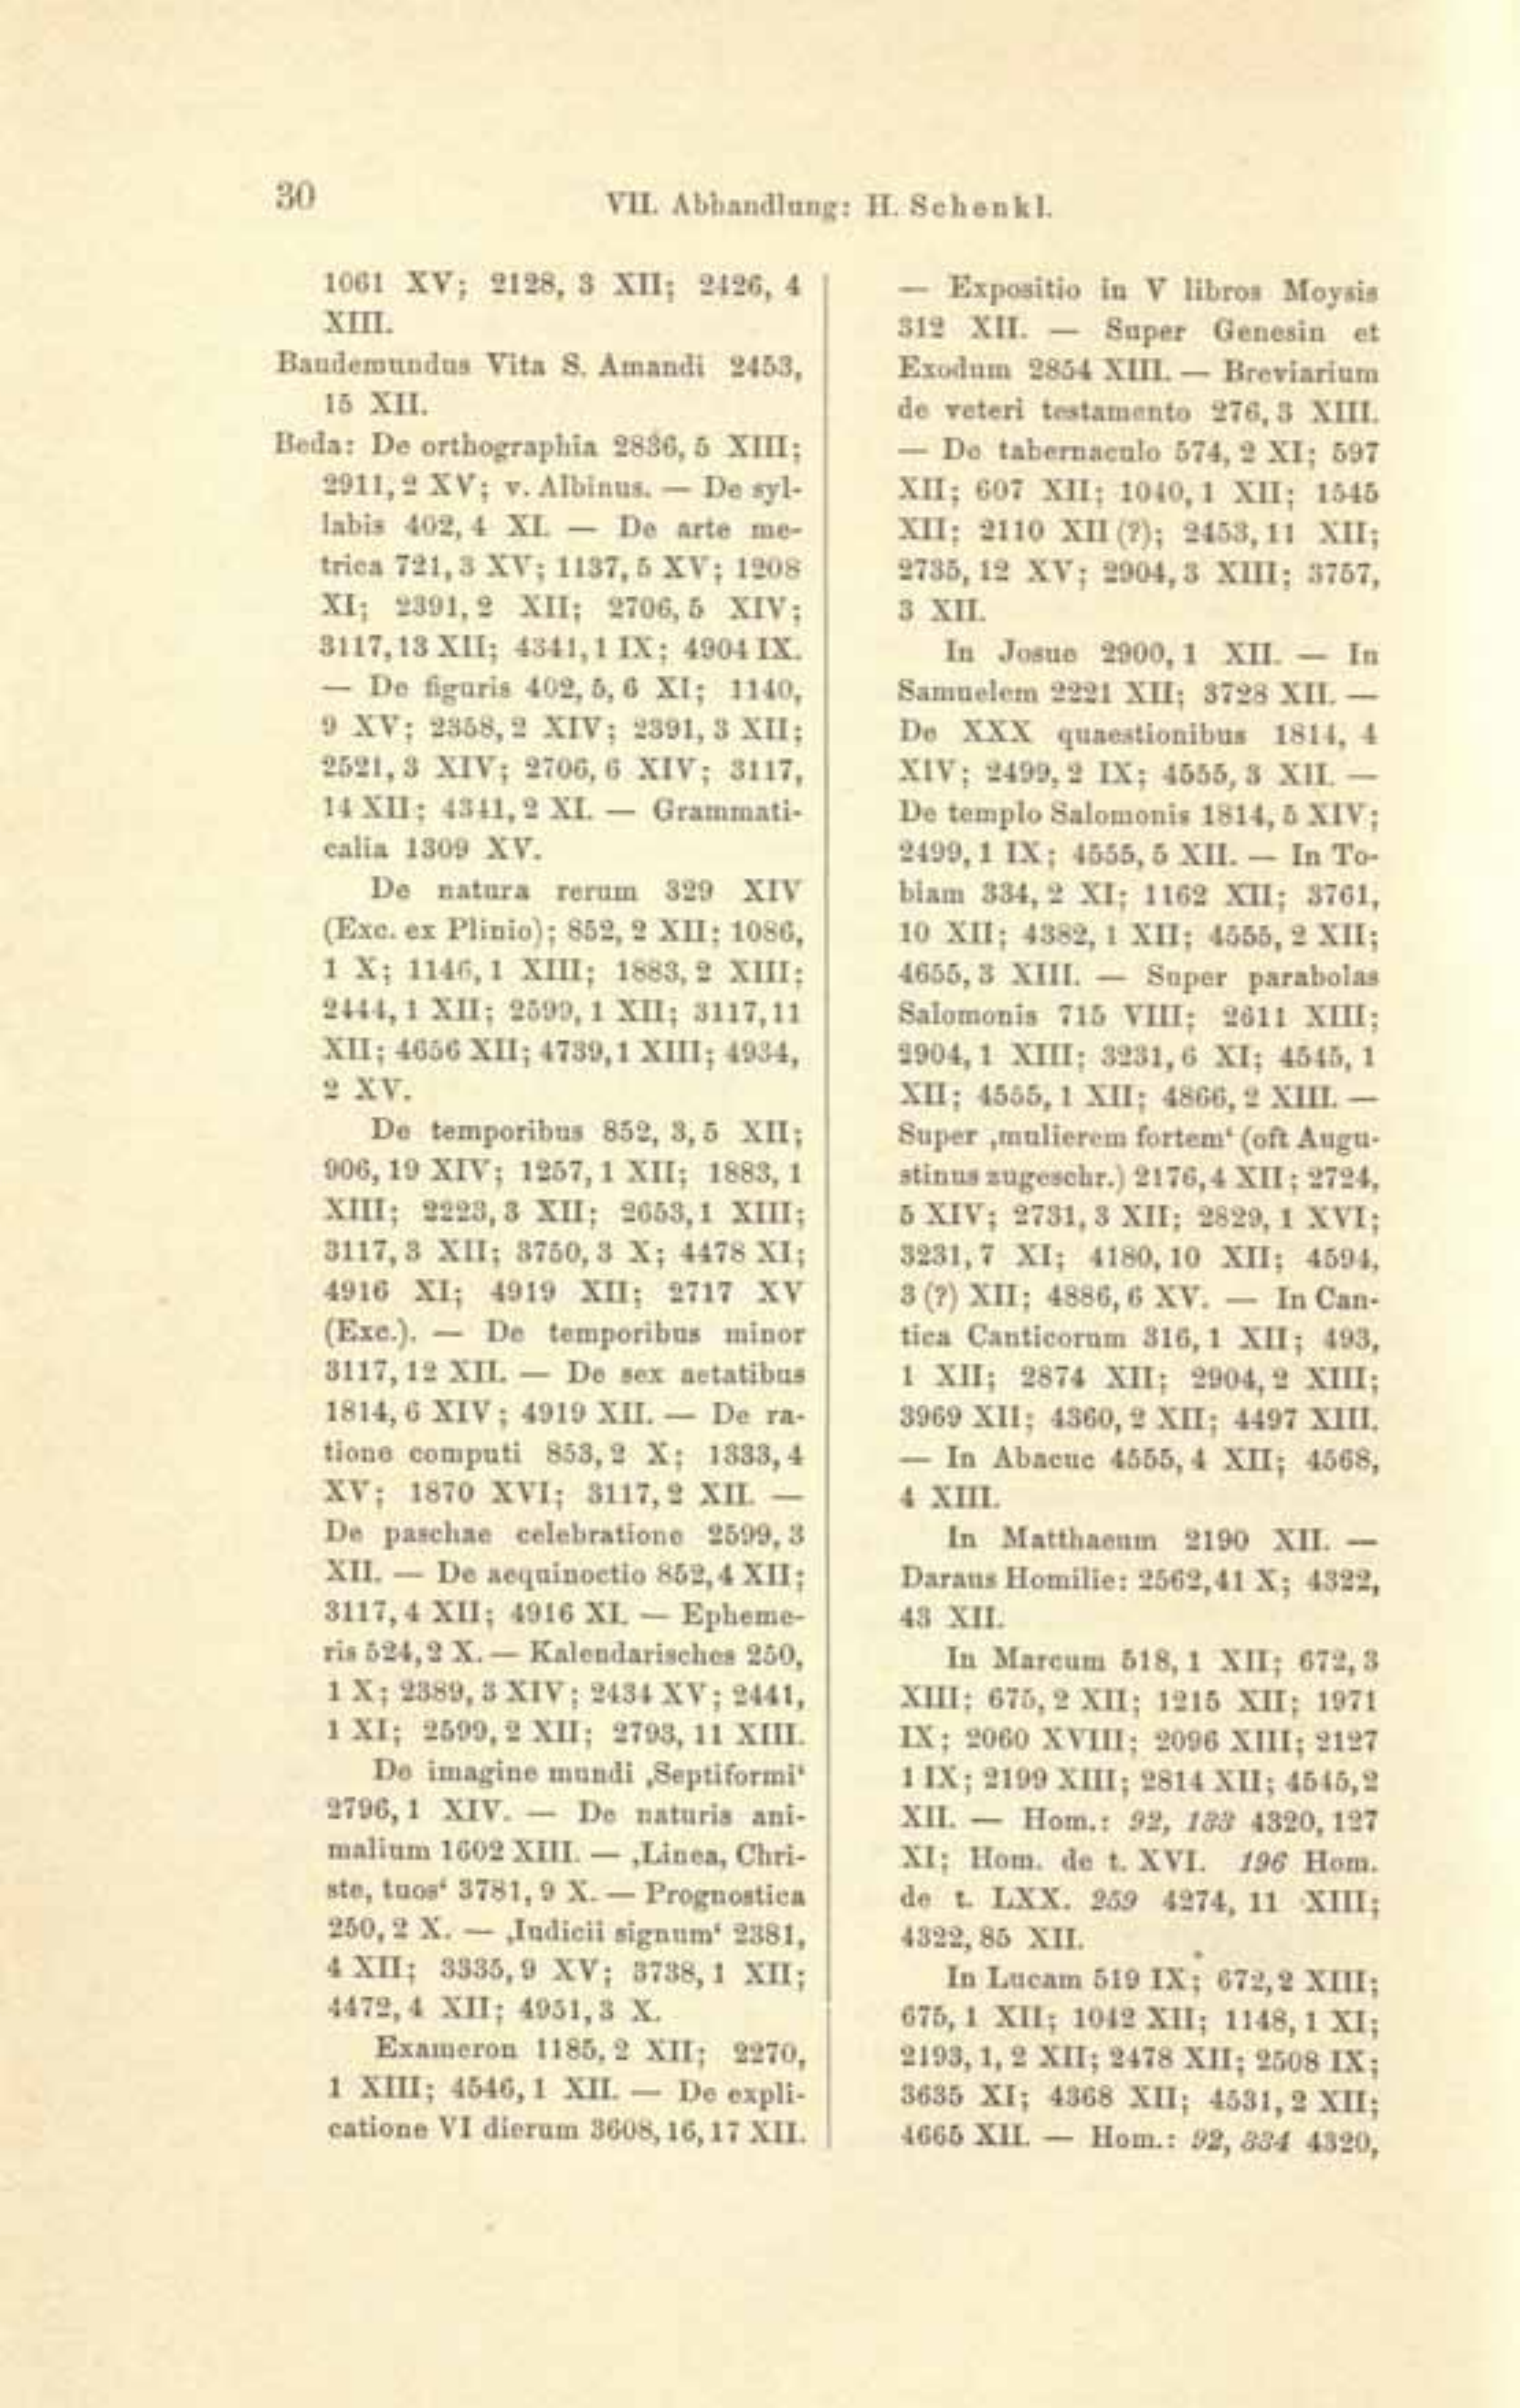 30
VII. Abhandlung: H. Schenkl.
1061 XV; 2128, 3 XII; 2426, 4
XIII.
Baudemundus Vita S. Amandi 2453,
15 XII.
Beda: De orthographia 2836, 5 XIII;
2911, 2 XV; v. Albinus. — De syl-
labis 402, 4 XI. — De arte me-
trica 721, 3 XV; 1137, 5 XV; 1208
XI; 2391, 2 XII; 2706, 5 XIV;
3117, 13 XII; 4341, 1 IX; 4904 IX.
— De figuris 402, 5, 6 XI; 1140,
9 XV; 2358, 2 XIV; 2391, 3 XII;
2521, 3 XIV; 2706, 6 XIV; 3117,
14 XII; 4341, 2 XI. — Grammati-
calia 1309 XV.
De natura rerum 329 XIV
(Exc. ex Plinio); 852, 2 XII; 1086,
1 X; 1146, 1 XIII; 1883, 2 XIII;
2444, 1 XII; 2599, 1 XII; 3117, 11
XII; 4656 XII; 4739, 1 XIII; 4934,
2 XV.
De temporibus 852, 3, 5 XII;
906, 19 XIV; 1257, 1 XII; 1883, 1
XIII; 2223, 3 XII; 2653, 1 XIII;
3117, 3 XII; 3750, 3 X; 4478 XI;
4916 XI; 4919 XII; 2717 XV
(Exc.). — De temporibus minor
3117, 12 XII. — De sex aetatibus
1814, 6 XIV; 4919 XII. — De ra-
tione computi 853, 2 X; 1333, 4
XV; 1870 XVI; 3117, 2 XII. —
De paschae celebratione 2599, 3
XII. — De aequinoctio 852, 4 XII;
3117, 4 XII; 4916 XI. — Epheme-
ris 524, 2 X. — Kalendarisches 250,
1 X; 2389, 3 XIV; 2434 XV; 2441,
1 XI; 2599, 2 XII; 2793, 11 XIII.
De imagine mundi ‚Septiformi‘
2796, 1 XIV. — De naturis ani-
malium 1602 XIII. — ‚Linea, Chri-
ste, tuos‘ 3781, 9 X. — Prognostica
250, 2 X. — ‚Iudicii signum‘ 2381,
4 XII; 3335, 9 XV; 3738, 1 XII;
4472, 4 XII; 4951, 3 X.
Exameron 1185, 2 XII; 2270,
1 XIII; 4546, 1 XII. — De expli-
catione VI dierum 3608, 16, 17 XII.
— Expositio in V libros Moysis
312 XII. — Super Genesin et
Exodum 2854 XIII. — Breviarium
de veteri testamento 276, 3 XIII.
— De tabernaculo 574, 2 XI; 597
XII; 607 XII; 1040, 1 XII; 1545
XII; 2110 XII (?); 2453, 11 XII;
2735, 12 XV; 2904, 3 XIII; 3757,
3 XII.
In Josue 2900, 1 XII. — In
Samuelem 2221 XII; 3728 XII. —
De XXX quaestionibus 1814, 4
XIV; 2499, 2 IX; 4555, 3 XII. —
De templo Salomonis 1814, 5 XIV;
2499, 1 IX; 4555, 5 XII. — In To-
biam 334, 2 XI; 1162 XII; 3761,
10 XII; 4382, 1 XII; 4555, 2 XII;
4655, 3 XIII. — Super parabolas
Salomonis 715 VIII; 2611 XIII;
2904, 1 XIII; 3231, 6 XI; 4545, 1
XII; 4555, 1 XII; 4866, 2 XIII. —
Super ‚mulierem fortem‘ (oft Augu-
stinus zugeschr.) 2176, 4 XII; 2724,
5 XIV; 2731, 3 XII; 2829, 1 XVI;
3231, 7 XI; 4180, 10 XII; 4594,
3 (?) XII; 4886, 6 XV. — In Can-
tica Canticorum 316, 1 XII; 493,
1 XII; 2874 XII; 2904, 2 XIII;
3969 XII; 4360, 2 XII; 4497 XIII.
— In Abacuc 4555, 4 XII; 4568,
4 XIII.
In Matthaeum 2190 XII. —
Daraus Homilie: 2562, 41 X; 4322,
43 XII.
In Marcum 518, 1 XII; 672, 3
XIII; 675, 2 XII; 1215 XII; 1971
IX; 2060 XVIII; 2096 XIII; 2127
1 IX; 2199 XIII; 2814 XII; 4545, 2
XII. — Hom.: 92, 133 4320, 127
XI; Hom. de t. XVI. 196 Hom.
de t. LXX. 259 4274, 11 XIII;
4322, 85 XII.
In Lucam 519 IX; 672, 2 XIII;
675, 1 XII; 1042 XII; 1148, 1 XI;
2193, 1, 2 XII; 2478 XII; 2508 IX;
3635 XI; 4368 XII; 4531, 2 XII;
4665 XII. — Hom.: 92, 334 4320,